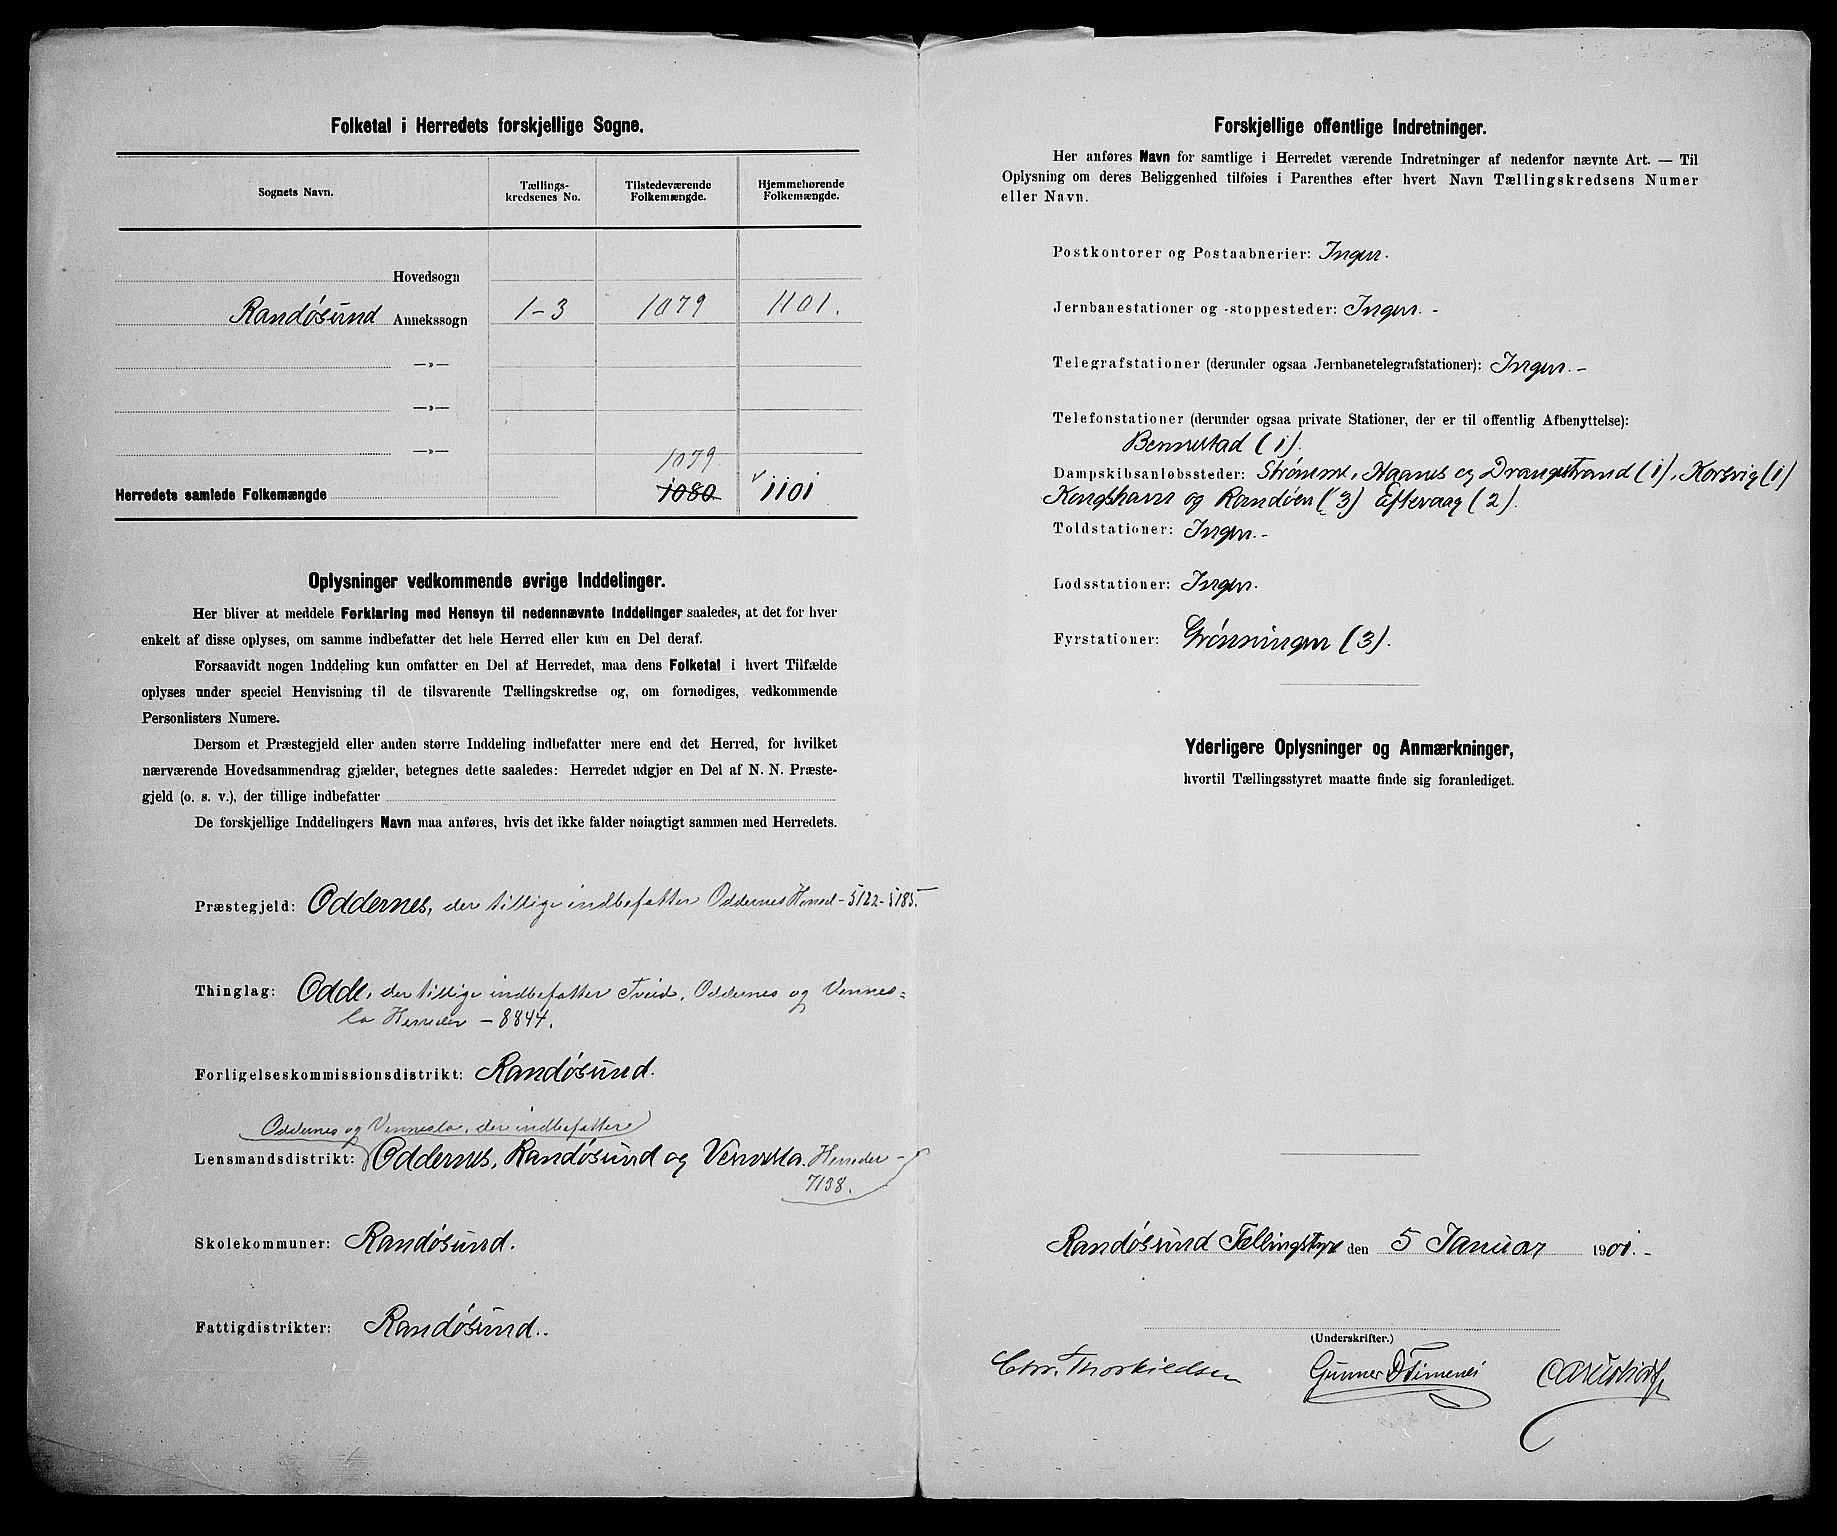 Folketal i Herredets forskjellige Sogne.
Sognets Navn.
Tællings-
kredsenes No.
Tilstedeværende
Folkemængde.
Hjemmehørende
Folkemængde.
Hovedsogn
Randøsund Annekssogn 1-3 1079 1101.
—»—
—»—
—»—
1079.
Herredets samlede Folkemængde 1080 1101
Oplysninger vedkommende øvrige Inddelinger.
Her bliver at meddele Forklaring med Hensyn til nedennævnte Inddelinger saaledes, at det for hver
enkelt af disse oplyses, om samme indbefatter det hele Herred eller kun en Del deraf.
Forsaavidt nogen Inddeling kun omfatter en Del af Herredet, maa dens Folketal i hvert Tilfælde
oplyses under speciel Henvisning til de tilsvarende Tællingskredse og, om fornødiges, vedkommende
Personlisters Numere.
Dersom et Præstegjeld eller anden større Inddeling indbefatter mere end det Herred, for hvilket
nærværende Hovedsammendrag gjælder, betegnes dette saaledes: Herredet udgjør en Del af N. N. Præste-
gjeld (o. s. v.), der tillige indbefatter
De forskjellige Inddelingers Navn maa anføres, hvis det ikke falder nøiagtigt sammen med Herredets.
Præstegjeld: Oddernes, der tillige indbefatter Oddernes Herred - 5122 - 5185.
Thinglag: Odde, der tillige indbefatter Tveid, Oddernes og Vennes=
la Herreder - 8844.
Forligelseskommissionsdistrikt: Randøsund.
Oddernes og Vennesla, der indbefatter
Lensmandsdistrikt: Oddernes, Randøsund og Vennesla. Herreder -
7138.
Skolekommuner: Randøsund.
Fattigdistrikter: Randøsund.
Forskjellige offentlige Indretninger.
Her anføres Navn for samtlige i Herredet værende Indretninger af nedenfor nævnte Art. — Til
Oplysning om deres Beliggenhed tilføies i Parenthes efter hvert Navn Tællingskredsens Numer
eller Navn.
Postkontorer og Postaabnerier: Ingen.
Jernbanestationer og -stoppesteder: Ingen. -
Telegrafstationer (derunder ogsaa Jernbanetelegrafstationer): Ingen. -
Telefonstationer (derunder ogsaa private Stationer, der er til offentlig Afbenyttelse):
Bennestad (1).
Dampskibsanløbssteder: Strømme, Haanes og Drangestrand (1), Korsvig (1)
Kongshavn og Randøen (3) Eftevaag (2).
Toldstationer: Ingen. -
Lodsstationer: Ingen.
Fyrstationer: Grønningen (3).
Yderligere Oplysninger og Anmærkninger,
hvortil Tællingsstyret maatte finde sig foranlediget.
Randøsund Tellingstyre den 5 Januar 1901. -
(Underskrifter.)
Chr. Thorkildsen Gunner